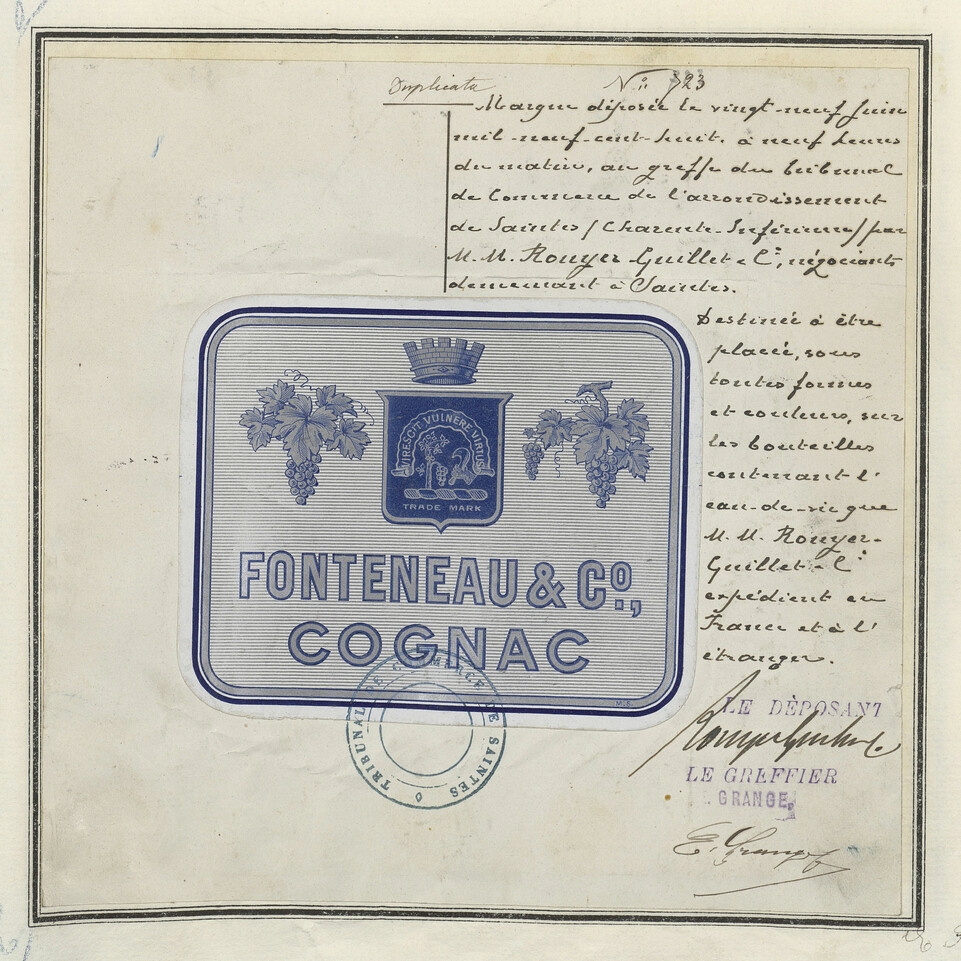 Duplicata
N° 723
Marque déposée le vingt-neuf Juin
mil-neuf-cent-huit, à neuf heures
du matin, au greffe du tribunal
de Commerce de l'arrondissement
de Saintes (Charente-Inférieure) par
M.M. Rouyer-Guillet & Cie, négociants
demeurant à Saintes.
Destinée à être
placée, sous
toutes formes
et couleurs, sur
les bouteilles
contenant l'
eau-de-vie que
M.M. Rouyer-
Guillet & Cie
expédient en
France et à l'
étranger.
VIRESCIT VULNERE VIRTUS
TRADE MARK
FONTENEAU & Co.,
COGNAC
TRIBUNAL DE COMMERCE DE SAINTES
LE DÉPOSANT
Rouyer Guillet & C
LE GREFFIER
GRANGE.
E. Grange